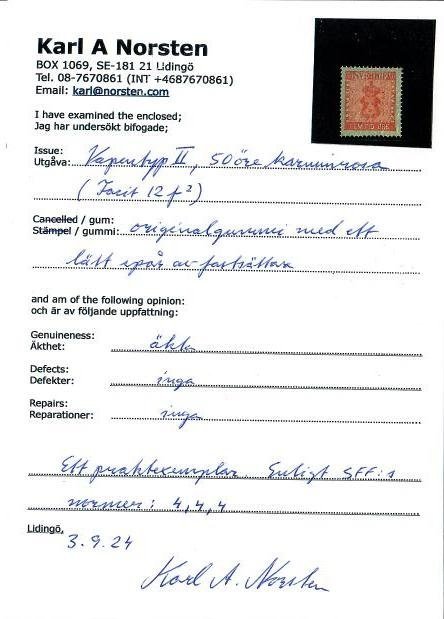 Karl A Norsten
BOX 1069, SE-181 21 Lidingö
Tel. 08-7670861 (INT +4687670861)
Email: karl@norsten.com
I have examined the enclosed;
Jag har undersökt bifogade;
Issue:
Utgåva: Vapentyp II, 50 öre karminrosa
(Facit 12 f²)
Cancelled / gum:
Stämpel / gummi: originalgummi med ett
lätt spår av fastsättare
and am of the following opinion:
och är av följande uppfattning:
Genuineness:
Äkthet: äkta
Defects:
Defekter: inga
Repairs:
Reparationer: inga
Ett praktexemplar. Enligt SFF:s
normer: 4, 4, 4
Lidingö,
3.9.24
Karl A. Norsten